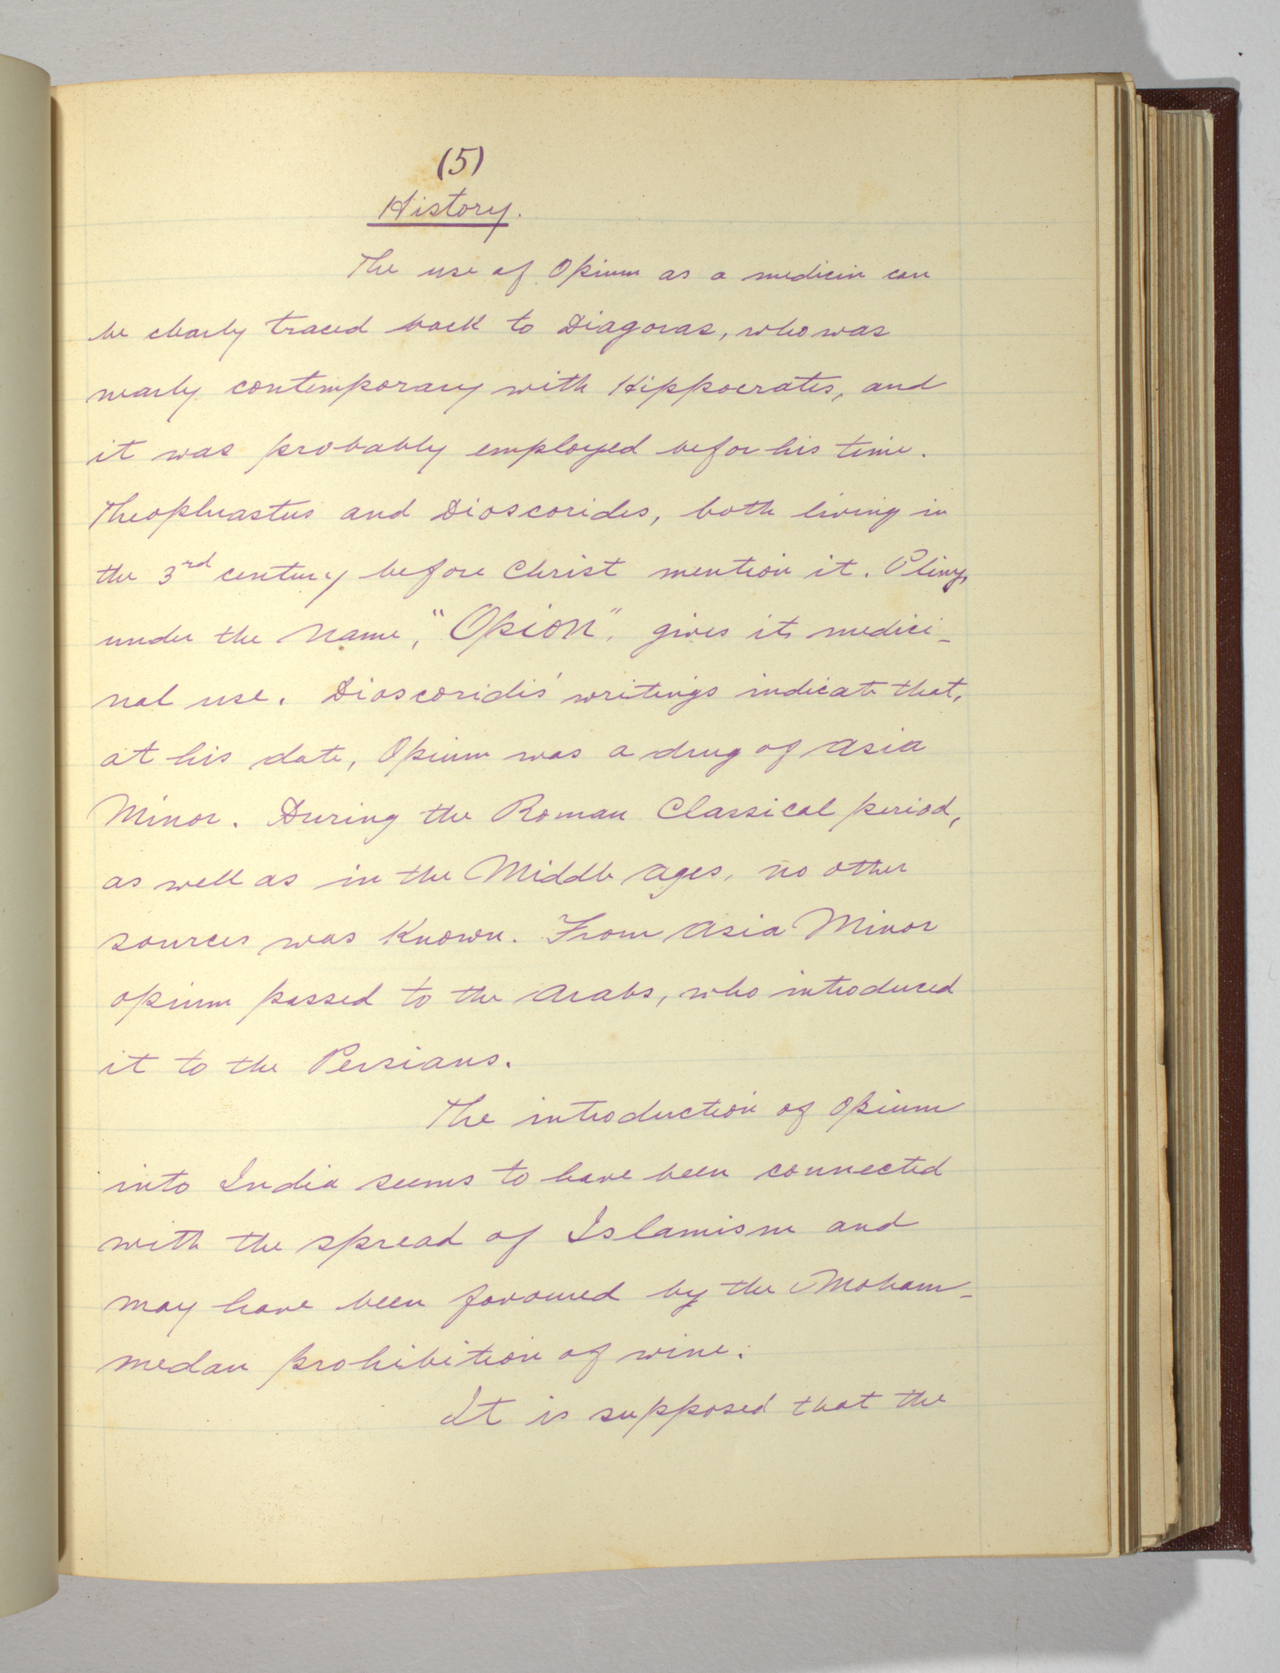 (5)
History.
The use of Opium as a medicin can
be clearly traced back to Diagoras, who was
nearly contemporary with Hippocrates, and
it was probably employed befor his time.
Theophrastus and Dioscorides, both living in
the 3rd century before Christ mention it. Pliny,
under the name, "Opion", gives its medici-
nal use. Dioscorides' writings indicate that,
at his date, Opium was a drug of Asia
Minor. During the Roman Classical period,
as well as in the Middle Ages, no other
sources was known. From Asia Minor
opium passed to the Arabs, who introduced
it to the Persians.
The introduction of Opium
into India seems to have been connected
with the spread of Islamism and
may have been favoured by the Moham-
medan prohibition of wine.
It is supposed that the